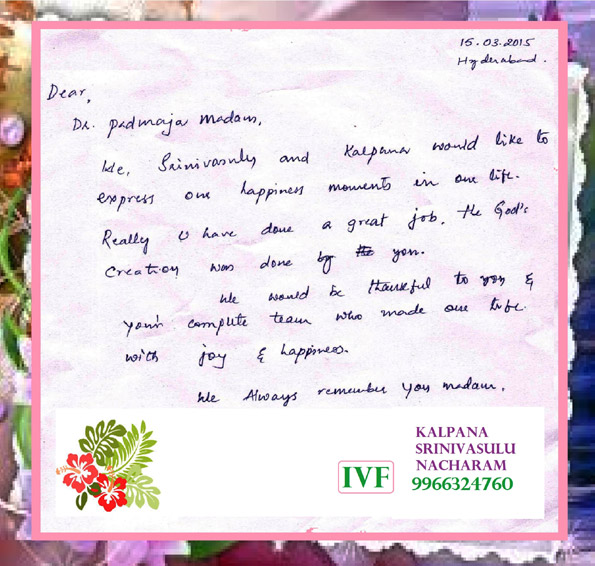 15.03.2015
Hyderabad.
Dear,
Dr. Padmaja Madam,
We, Srinivasulu and Kalpana would like to
express our happiness moments in our life.
Really U have done a great job. The God's
Creation was done by the you.
We would be thankful to you &
your complete team who made our life.
with joy & happiness.
We Always remember you madam.
KALPANA
SRINIVASULU
IVF NACHARAM
9966324760